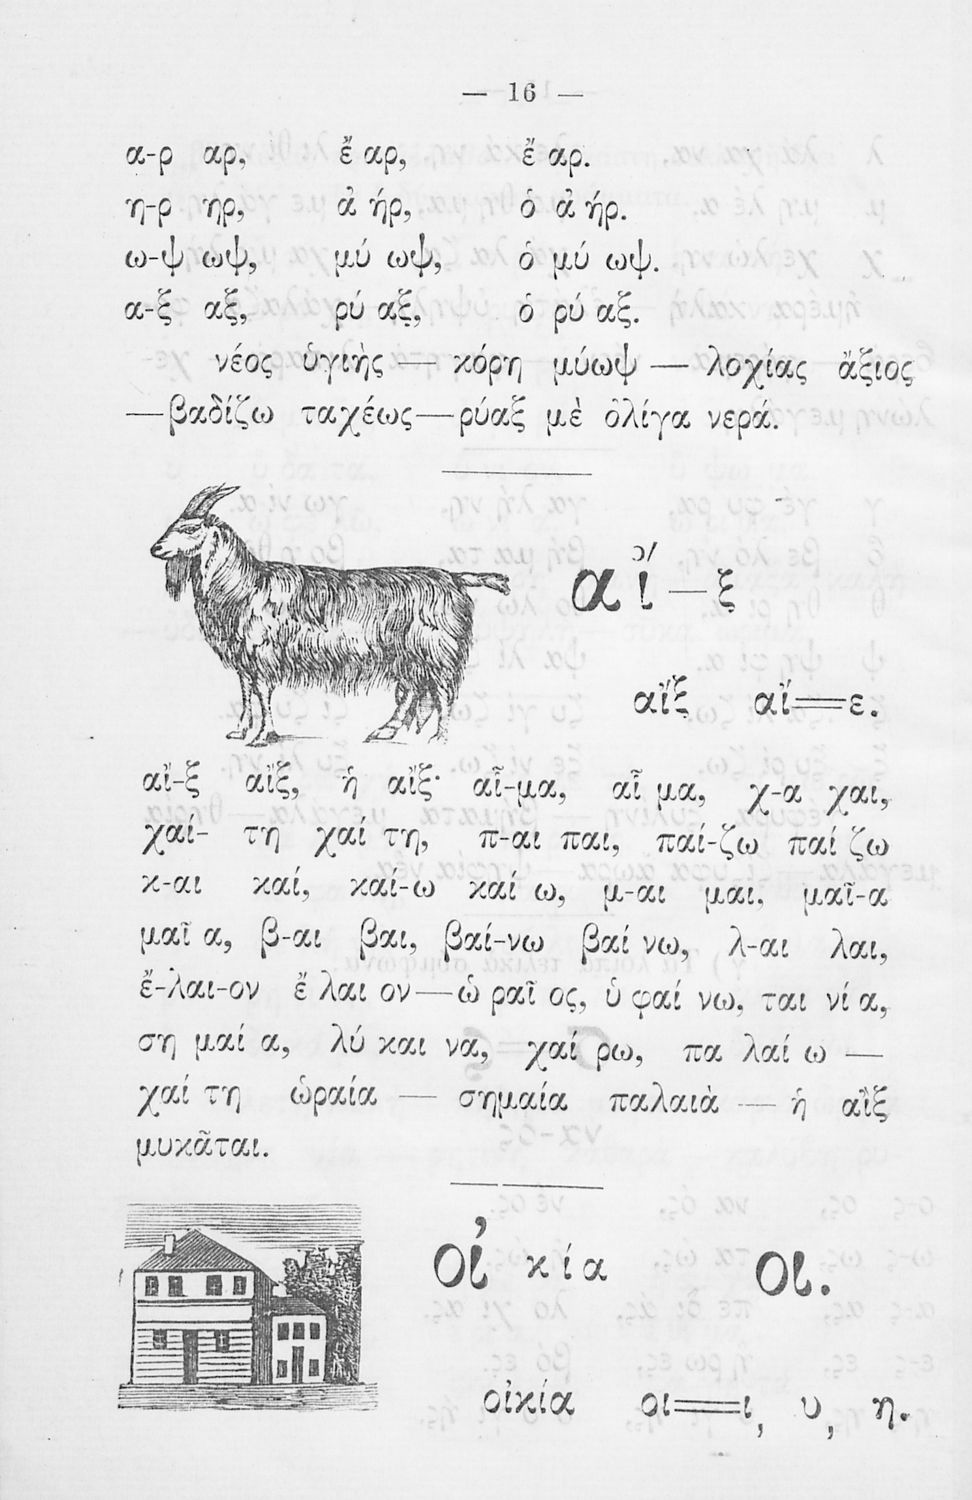 — 16 —
α-ρ αρ, ἔ αρ, ἔ αρ.
η-ρ ηρ, ἀ ήρ, ὁ ἀ ήρ.
ω-ψ ωψ, μύ ωψ, ὁ μύ ωψ.
α-ξ αξ, ρύ αξ, ὁ ρύ αξ.
νέος ὑγιὴς — κόρη μύωψ — λοχίας ἄξιος
—βαδίζω ταχέως—ρύαξ μὲ ὀλίγα νερά.
αἴ—ξ
αἴξ αἴ=ε.
αἴ-ξ αἴξ, ἡ αἴξ· αἷ-μα, αἷ μα, χ-α χαι,
χαί- τη χαί τη, π-αι παι, παί-ζω παί ζω
κ-αι καί, καί-ω καί ω, μ-αι μαι, μαῖ-α
μαῖ α, β-αι βαι, βαί-νω βαί νω, λ-αι λαι,
ἔ-λαι-ον ἔ λαι ον—ὡ ραῖ ος, ὑ φαί νω, ται νί α,
ση μαί α, λύ και να, χαί ρω, πα λαί ω —
χαί τη ὡραία — σημαία παλαιὰ — ἡ αἲξ
μυκᾶται.
Οἰ κία Οι.
οἰκία οι=ι, υ, η.